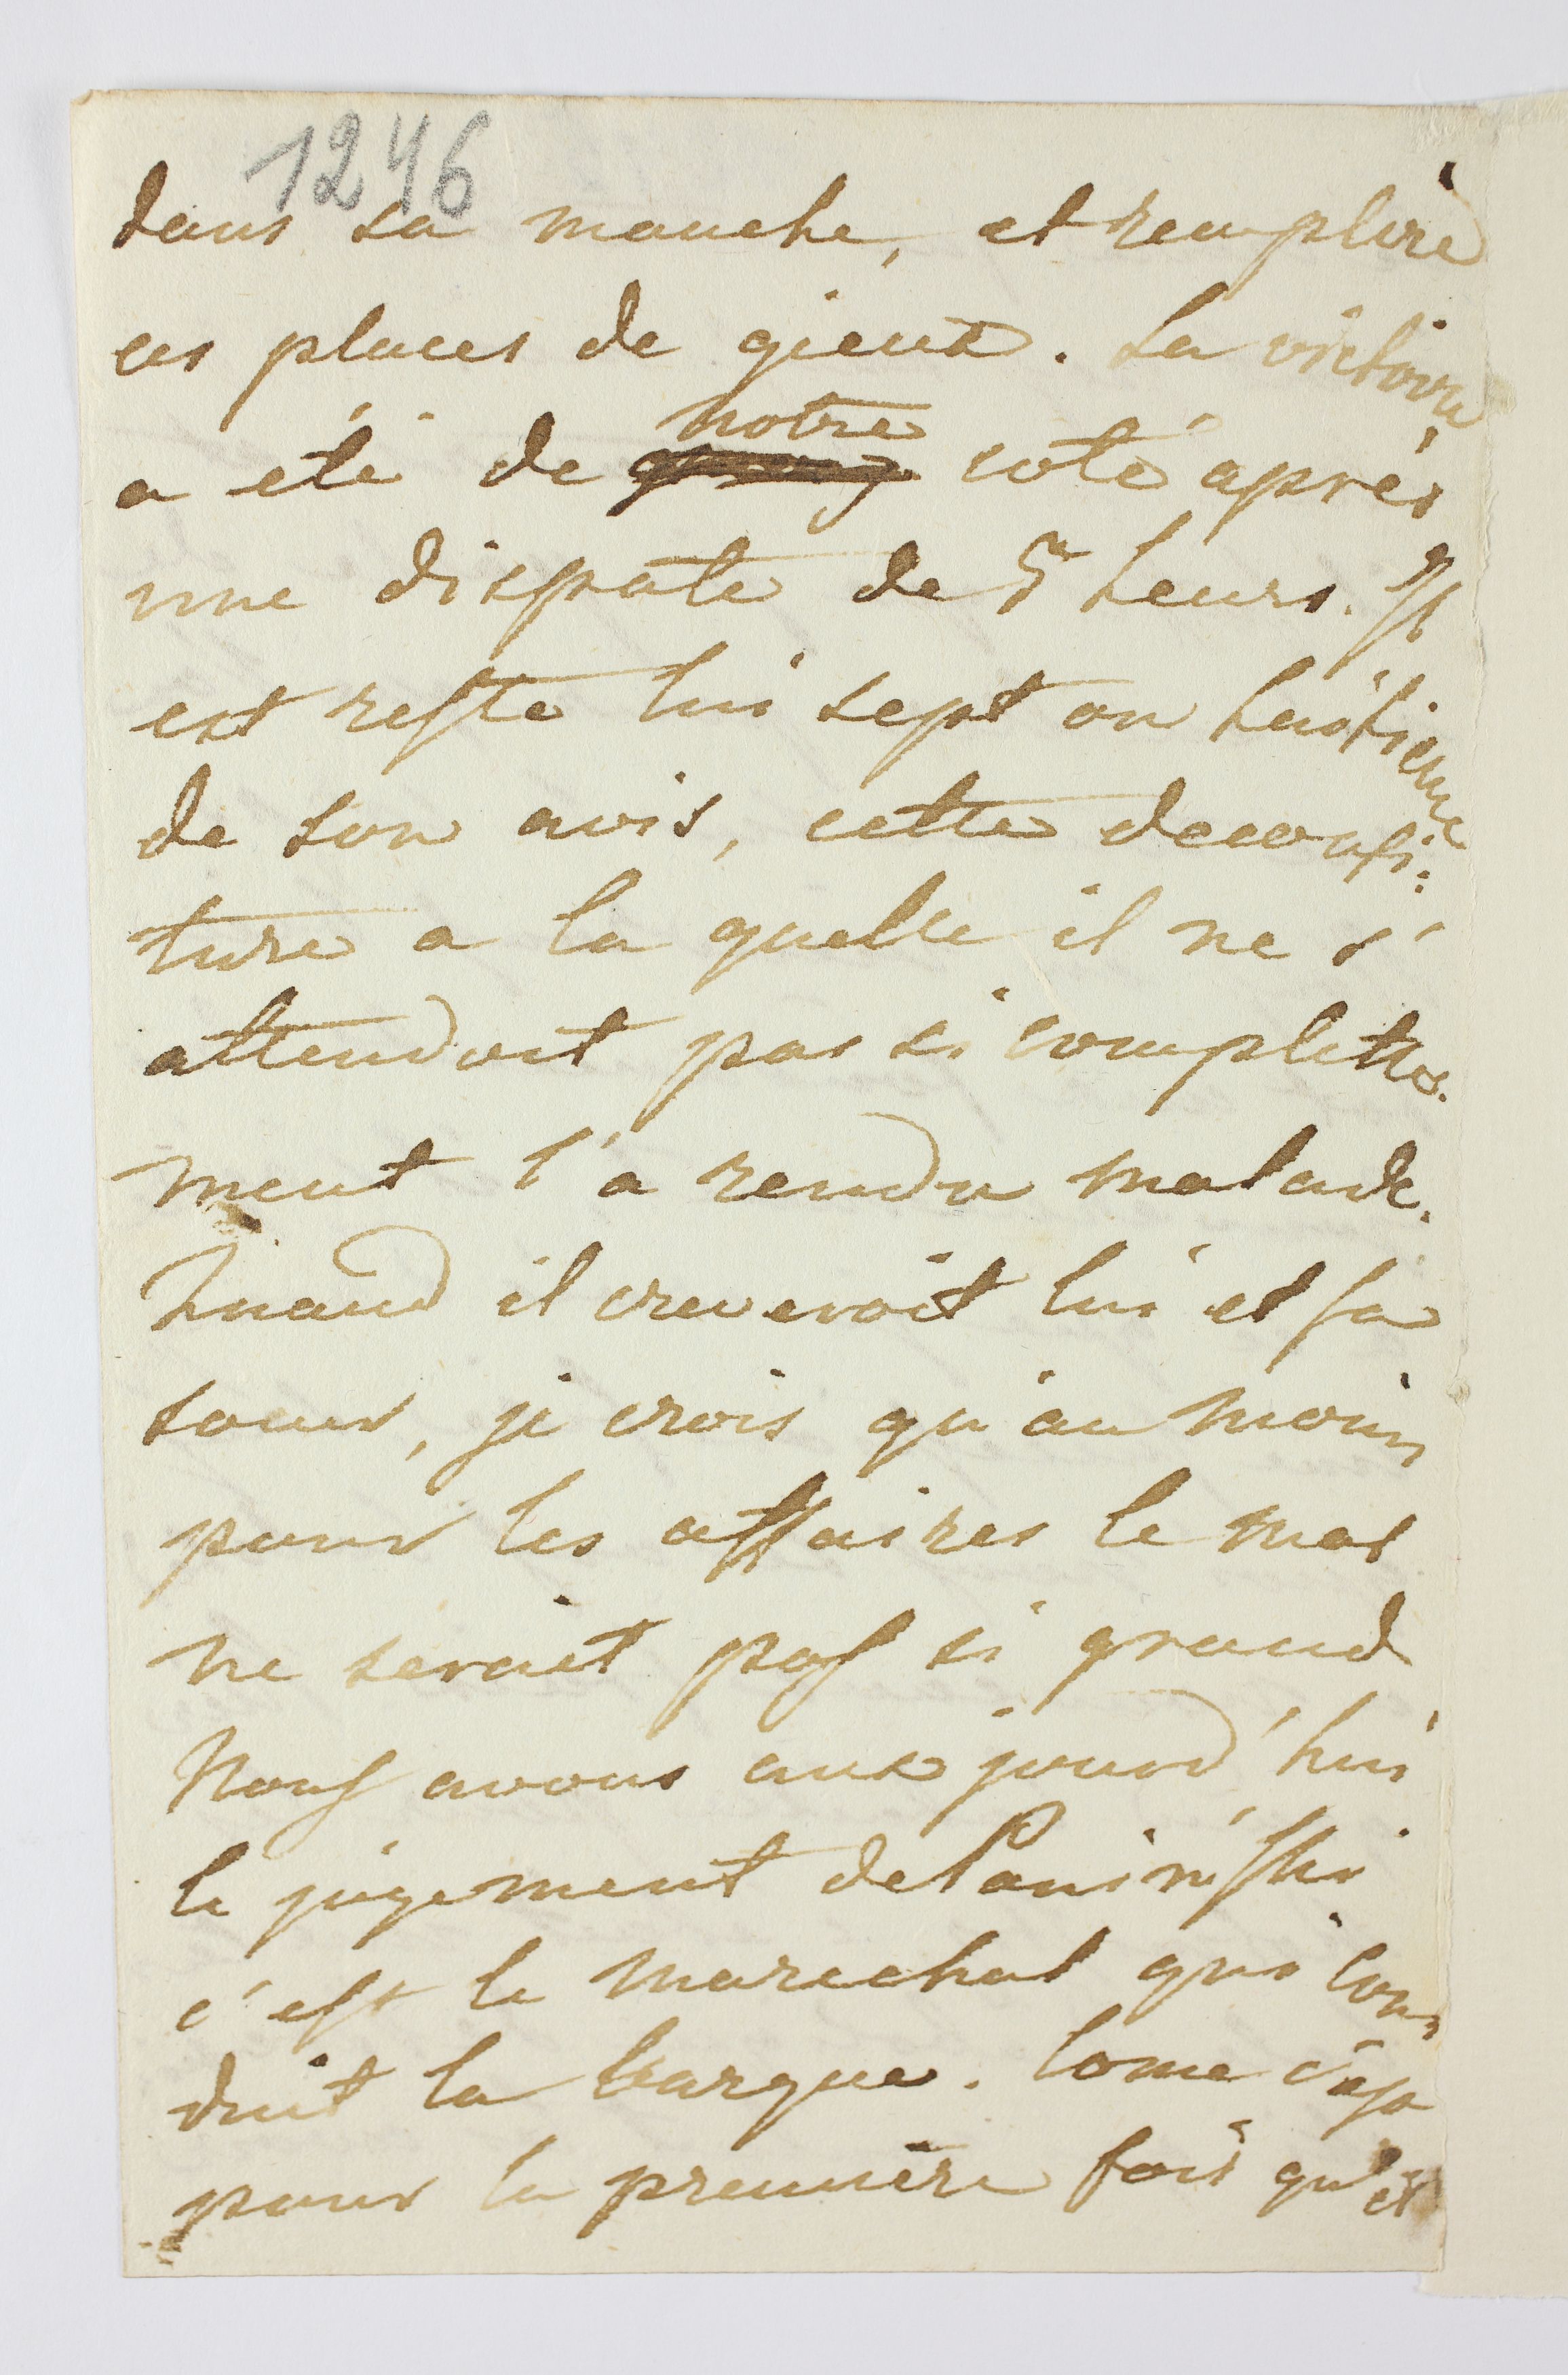 1246
dans sa manche, et remplire
ces places de gieux. La victoire
a eté de notre coté après
une dispute de 5 heurs. Il
est resté lui sept ou huitieme
de son avis, cette decoufi:
ture a la quelle il ne s'
attendoit pas si complette.
ment l'a rendu malade.
Quand il creveroit lui et sa
soeur, je crois qu'au moins
pour les affaires le mal
ne serait pas si grand
Nous avons aux jourd'hui
le jugement de Poninski
c'est le marechal qui con,
duit la barque. Come c'est
pour la première fois qu'il